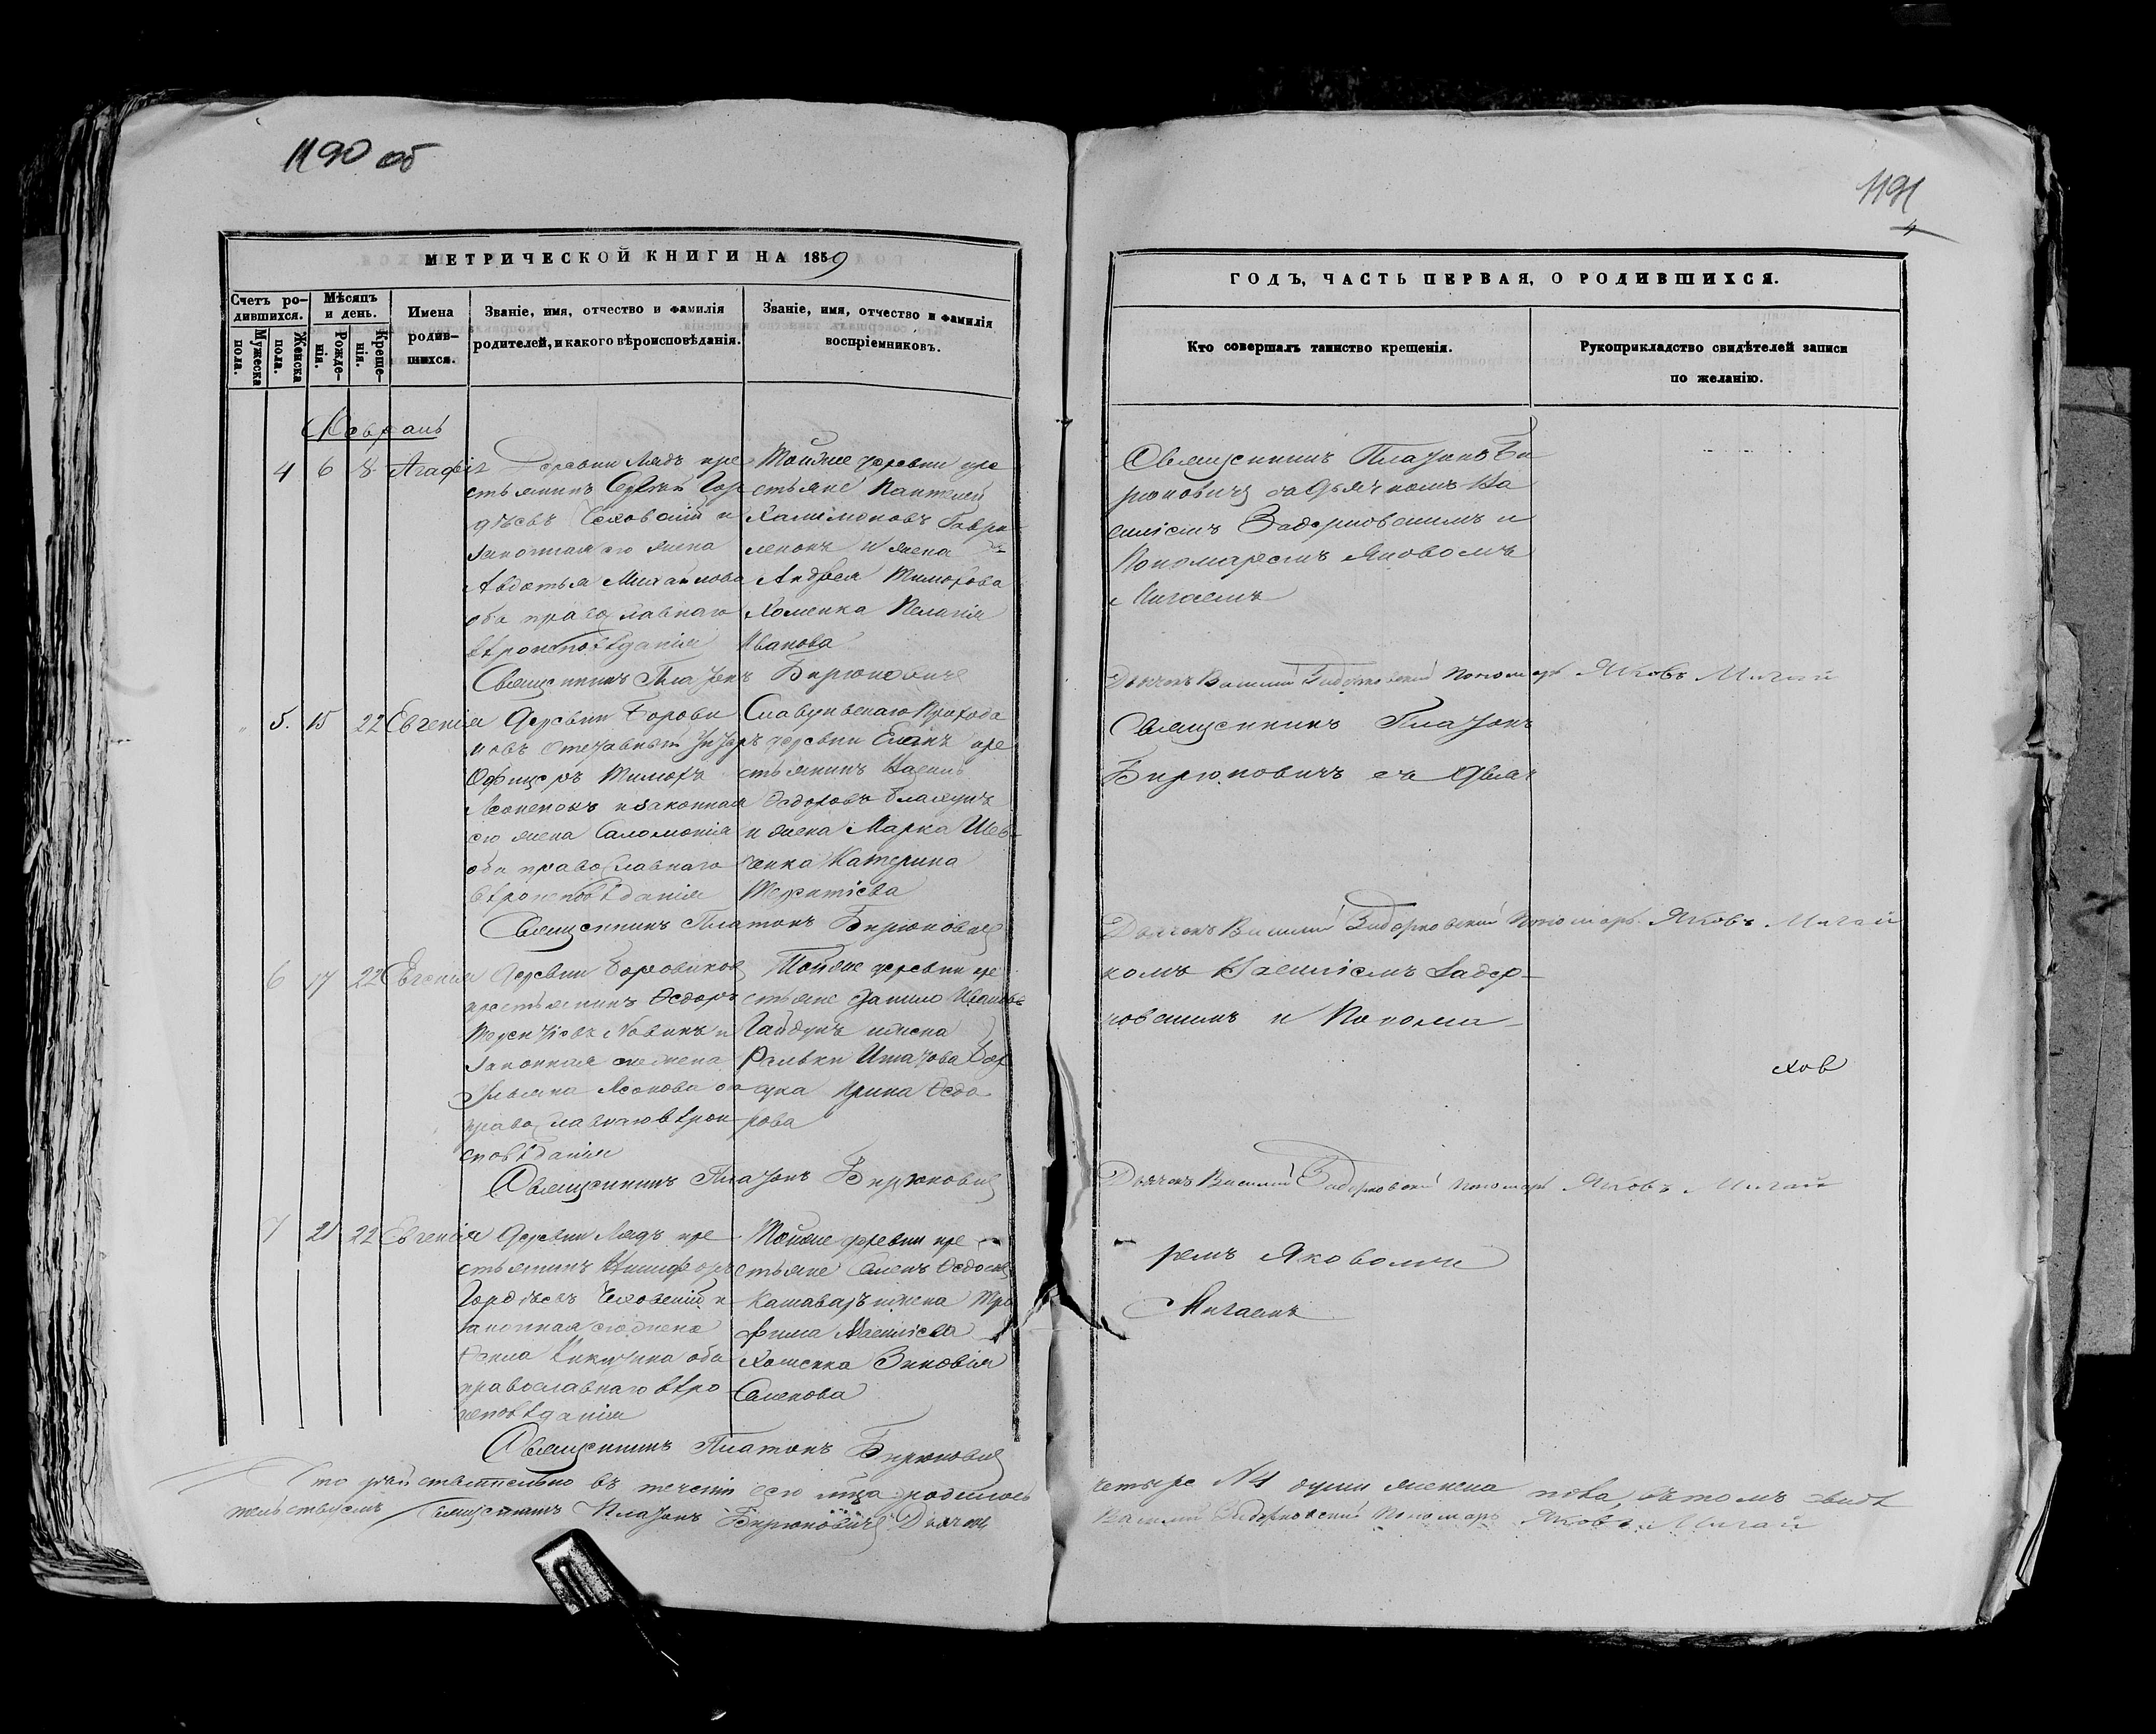 1190 об
МЕТРИЧЕСКОЙ КНИГИ НА 1859
Счетъ ро-
дившихся.
Мужеска
пола.
Женска
пола.
Мѣсяцъ
и день.
Рожде-
нія.
Креще-
нія.
Имена
родив-
шихся.
Званіе, имя, отчество и фамилія
родителей, и какого вѣроисповѣданія.
Званіе, имя, отчество и фамилія
воспріемниковъ.
Февраль
4 6 8 Агафія
Деревни Лядъ кре
стьянинъ Сергѣй Гор
дѣевъ
законная его жена
Авдотья Михайлова
оба православнаго
вѣроисповѣданія
Тойже деревни кре
стьяне Пантелей
Халимоновъ Гаври
ленокъ и жена
Андрея Тимофѣва
Хоменка Пелагія
Иванова
Священникъ Платонъ Бирюковичъ
5. 15 22 Евгенія
Деревни Борови
ковъ отставной Унтеръ
Офицеръ Тимофъ
и законная
его жена Саломонія
оба православнаго
вѣроисповѣданія
прихода
деревни кре
стьянинъ Василь
Федоровъ
и жена Марка Шев-
ченка Катерина
Терентіева
Священникъ Платонъ Бирюковичъ
6 17 22 Евгенія
Деревни Боровиков
крестьянинъ Федоръ
Терентіевъ Новикъ и
законная его жена
Ульяна оба
православнаго вѣрои
сповѣданія
Тойже деревни кре
стьяне Данило Ивановъ
Гайдукъ и жена
Игнатова
Ирина Федо
рова
Священникъ Платонъ Бирюковичъ
7 21 22 Евгенія
Деревни Лядъ кре
стьянинъ Никифоръ
Гордѣевъ и
законная его жена
Никитина оба
православнаго вѣро
исповѣданія
Тойже деревни кре
стьяне Семенъ Федосіевъ
Кашаваръ и жена Тро
фима
Хоменка Зиновія
Семенова
Священникъ Платонъ Бирюковичъ
Что дѣйствительно въ теченіи сего мѣсяца родилось
тельствуемъ Священникъ Платонъ Бирюковичъ Дьячокъ
1191
4
ГОДЪ, ЧАСТЬ ПЕРВАЯ, О РОДИВШИХСЯ.
Кто совершалъ таинство крещенія.
Рукоприкладство свидѣтелей записи
по желанію.
Священникъ Платонъ Би
рюковичъ съ Дьячкомъ Ва
силіемъ Задерковскимъ и
Пономаремъ Яковомъ
Мигаемъ
Дьячокъ Василий Задерковский Пономарь Яковъ Мигай
Священникъ Платонъ
Бирюковичъ съ Дьяч
Дьячокъ Василий Задерковский Пономарь Яковъ Мигай
комъ Василіемъ Задер-
ковскимъ и Понома-
Дьячокъ Василий Задерковский Пономарь Яковъ Мигай
ремъ Яковомъ
Мигаемъ
четыре № 4 души женска пола, въ томъ свидѣ
Василий Задерковский Пономарь Яковъ Мигай